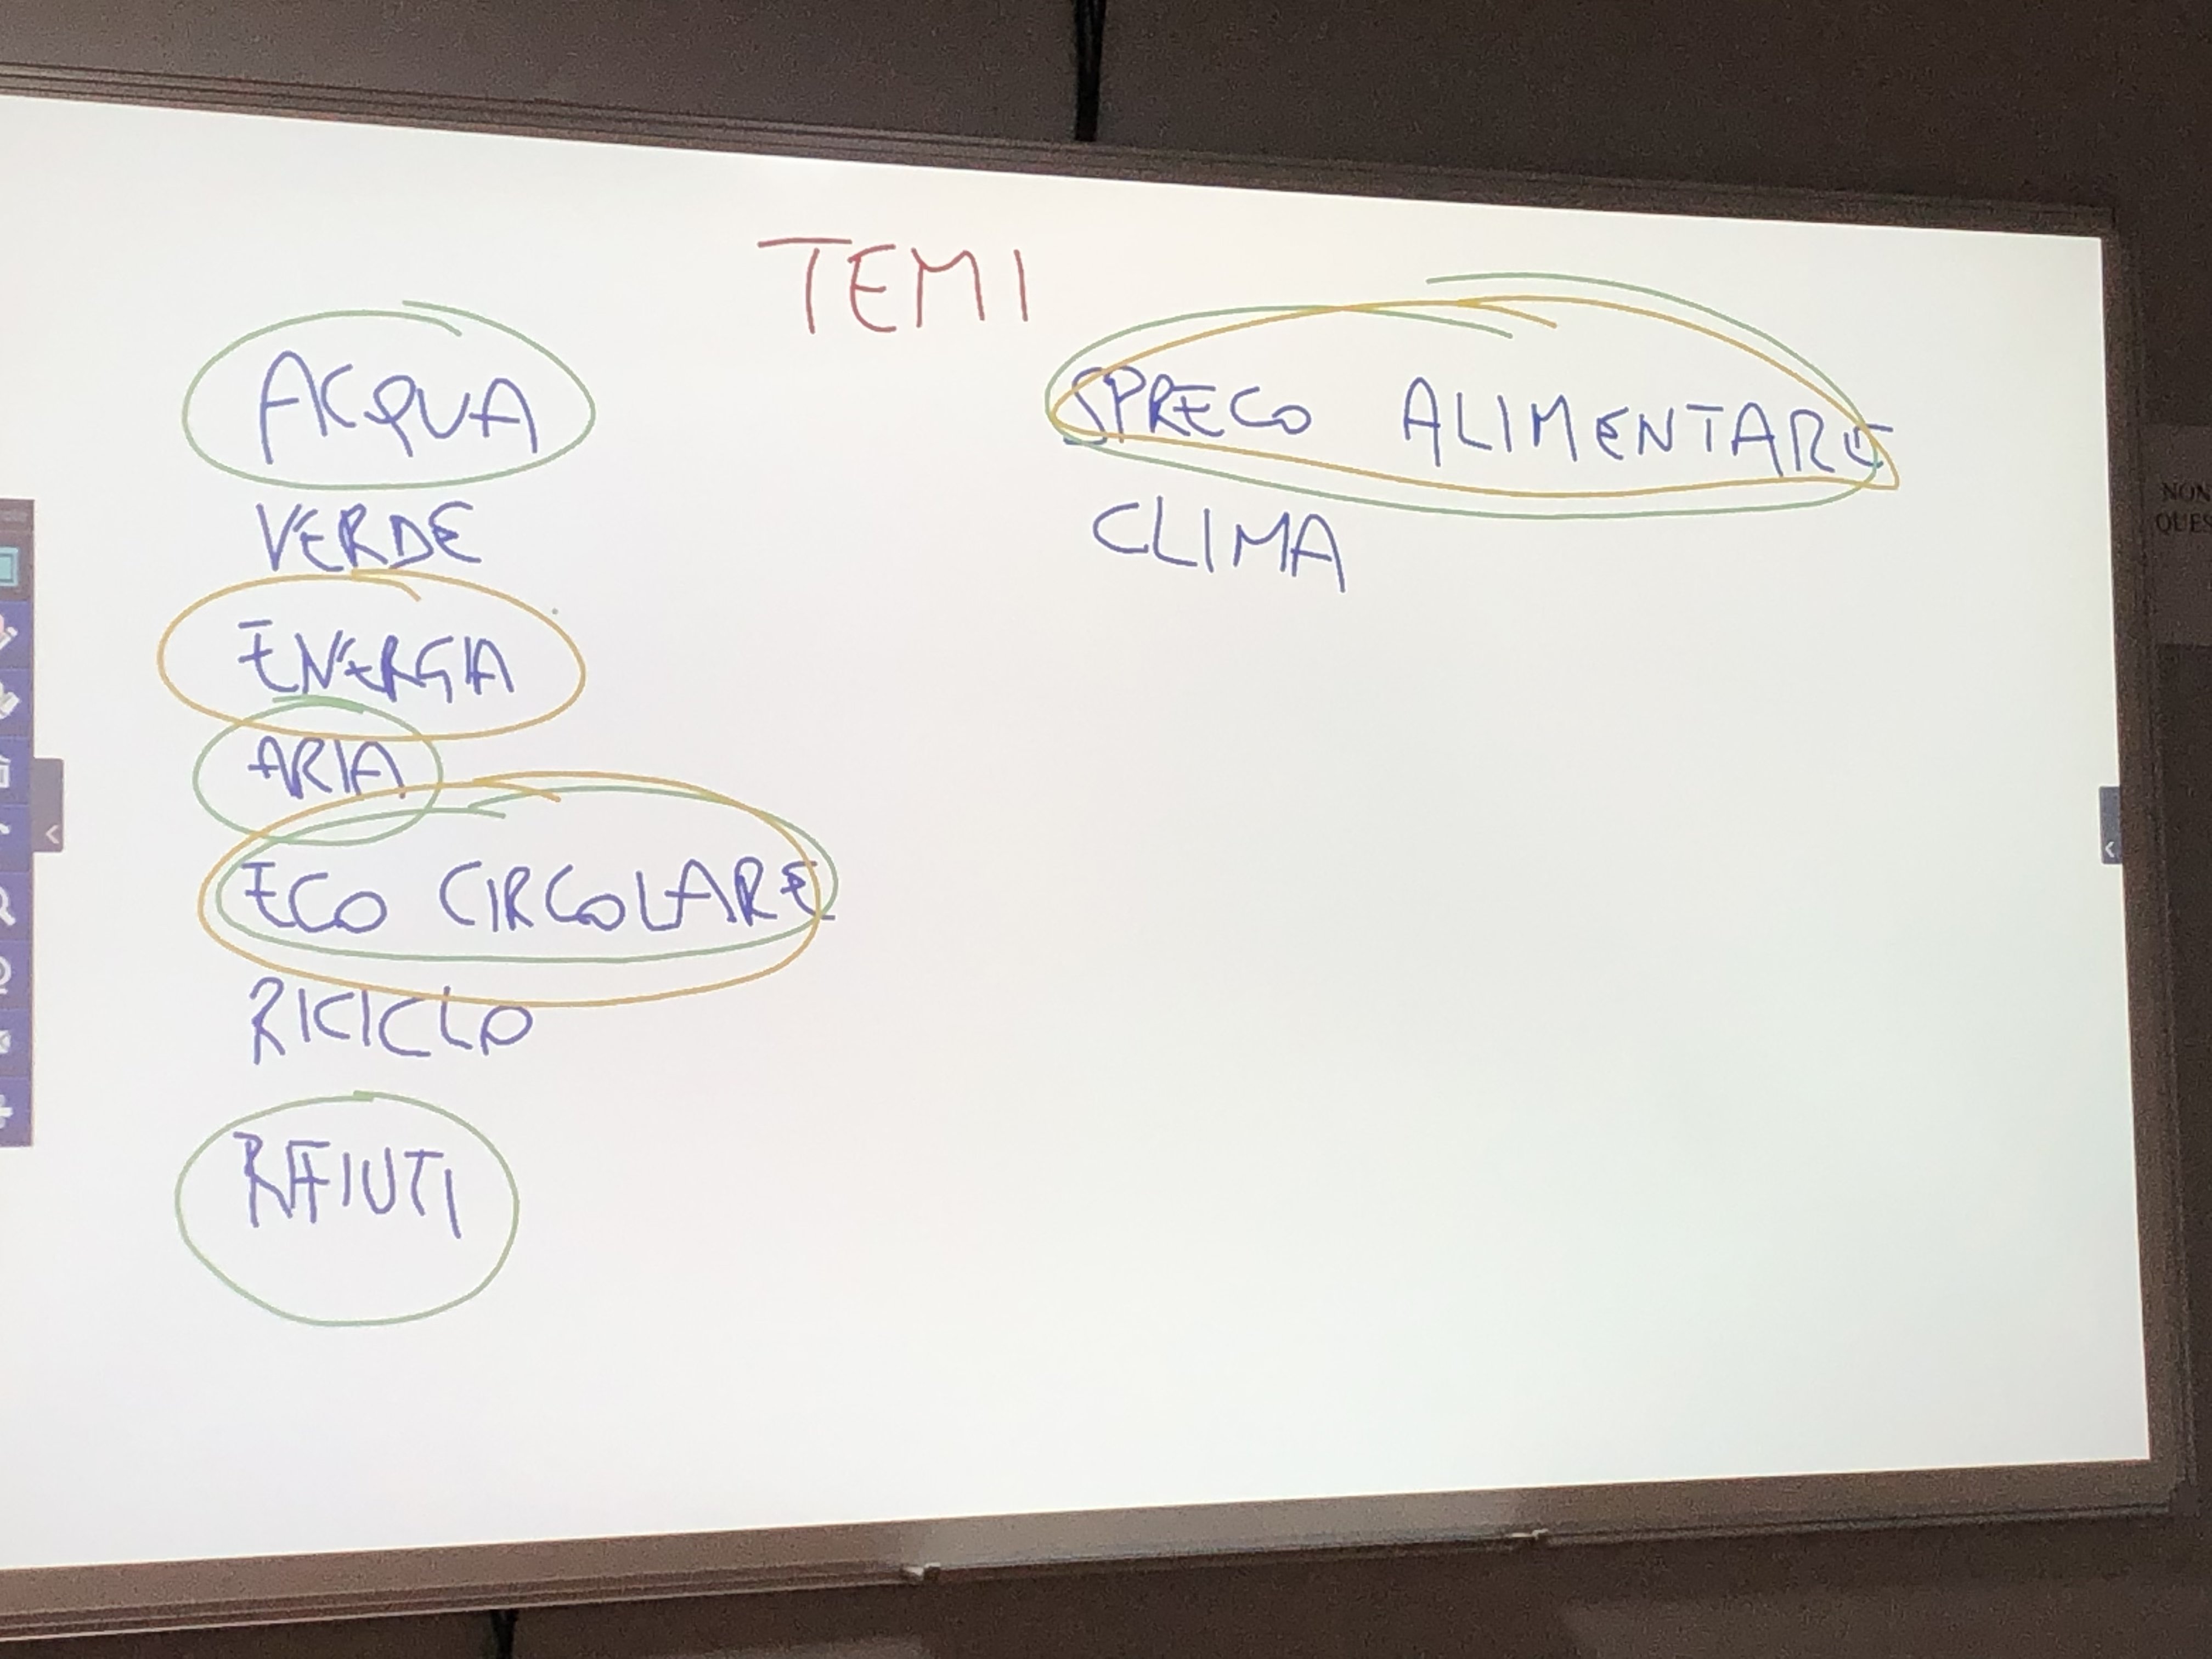 TEMI
ACQUA
VERDE
ENERGIA
ARIA
ECO CIRCOLARE
RICICLO
RIFIUTI
SPRECO ALIMENTARE
CLIMA
NON
QUES